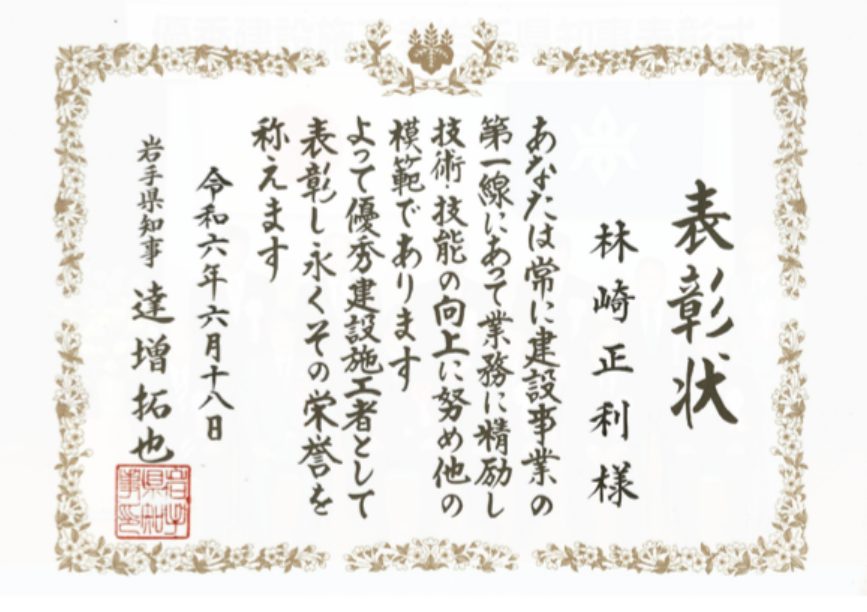 表彰状
林崎正利様
あなたは常に建設事業の
第一線にあって業務に精励し
技術・技能の向上に努め他の
模範であります
よって優秀建設施工者として
表彰し永くその栄誉を
称えます
令和六年六月十八日
岩手県知事 達増拓也
岩手県知事印